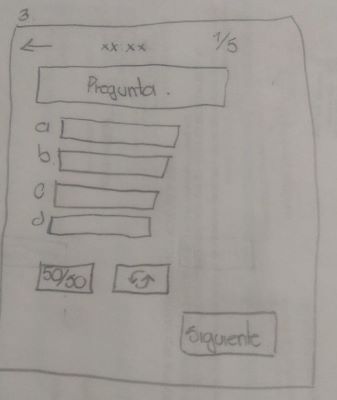 3.
xx xx 1/5
Pregunta.
a
b.
c
d
50/50
Siguiente